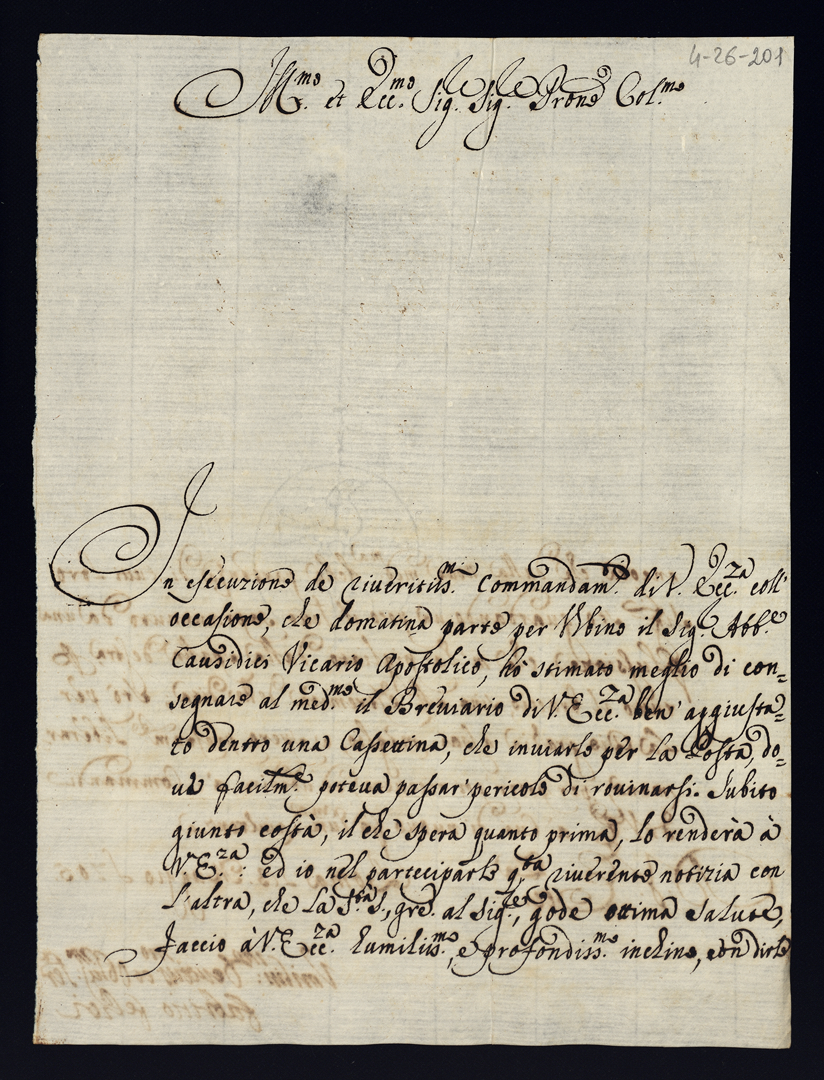 4-26-201
Ill.mo et Ecc.mo Sig.re Sig.re Prone Col.mo
In esecuzione de riveritiss.mi Commandam.ti di V. Ecc.za coll'
occasione, che domatina parte per Vrbino il Sig.r Abb.e
Causidici Vicario Apostolico, hò stimato meglio di con=
segnare al med.mo il Breviario di V. Ecc.za ben' aggiusta=
to dentro una Cassettina, che inviarlo per la Posta, do=
ve facilm.te poteva passar' pericolo di rovinarsi. Subito
giunto costà, il che spera quanto prima, lo renderà à
V. E.za: ed io nel parteciparle q.ta riverente notizia con
l'altra, che la S.tà S., gre. al Sig.re, gode ottima salute,
faccio à V. Ecc.za humiliss.mo, e profondiss.mo inchino, con dirle